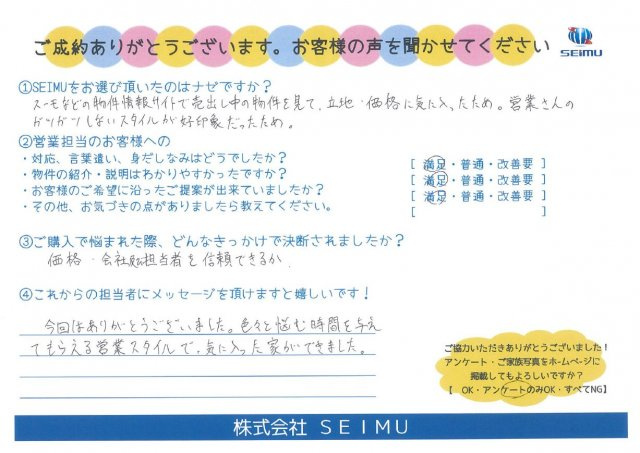 ご成約ありがとうございます。お客様の声を聞かせてください
SEIMU
①SEIMUをお選び頂いたのはナゼですか？
スーモなどの物件情報サイトで売出し中の物件を見て、立地・価格に気に入ったため。営業さんの
ガツガツしないスタイルが好印象だったため。
②営業担当のお客様への
・対応、言葉遣い、身だしなみはどうでしたか？ [ 満足・普通・改善要 ]
・物件の紹介・説明はわかりやすかったですか？ [ 満足・普通・改善要 ]
・お客様のご希望に沿ったご提案が出来ていましたか？ [ 満足・普通・改善要 ]
・その他、お気づきの点がありましたら教えてください。 [ ]
③ご購入で悩まれた際、どんなきっかけで決断されましたか？
価格・会社及担当者を信頼できるか
④これからの担当者にメッセージを頂けますと嬉しいです！
今回はありがとうございました。色々と悩む時間を与え
てもらえる営業スタイルで、気に入った家ができました。
ご協力いただきありがとうございました！
アンケート・ご家族写真をホームページに
掲載してもよろしいですか？
【 OK・アンケートのみOK・すべてNG】
株式会社 ＳＥＩＭＵ